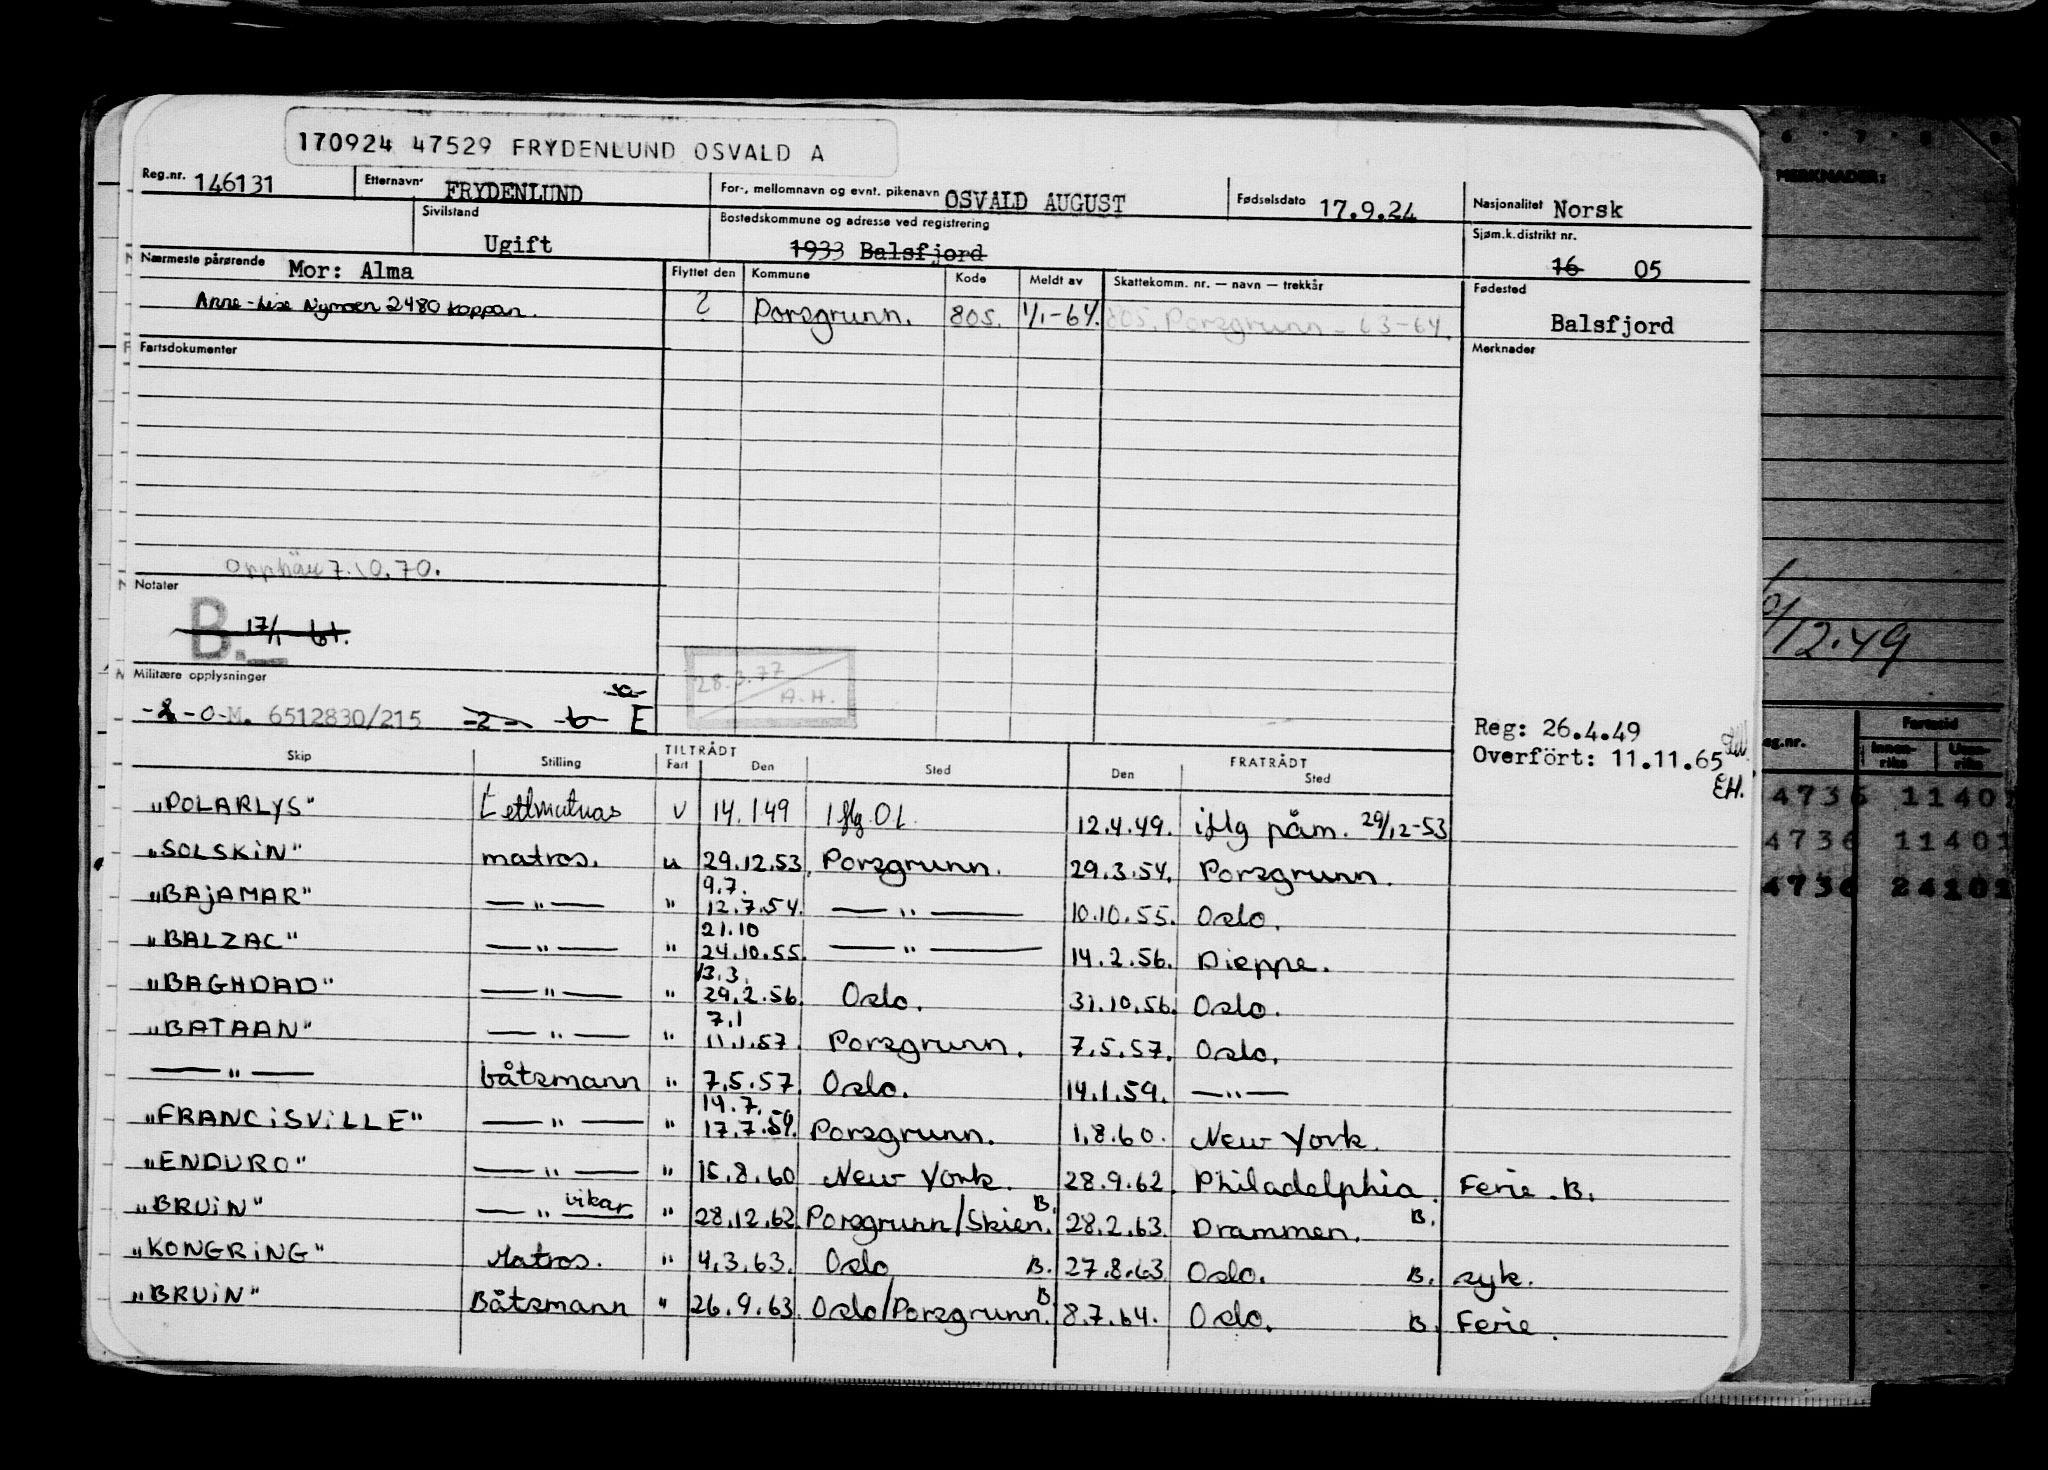 170924 47529 FRYDENLUND OSVALD A
Reg.nr. 146131 Etternavn FRYDENLUND For-, mellomnavn og evnt. pikenavn OSVALD AUGUST Fødselsdato 17.9.24 Nasjonalitet Norsk
Sivilstand Ugift Bostedskommune og adresse ved registrering 1933 Balsfjord Sjøm.k.distrikt nr. 16 05
Nærmeste pårørende Mor: Alma Flyttet den Kommune Kode Meldt av Skattekomm. nr. — navn — trekkår Fødested
Anne-Lise Nymoen 2480 Koppan. ? Porsgrunn. 805. 1/1-64. 805. Porsgrunn - 63-64. Balsfjord
Fartsdokumenter Merknader
7.10.70.
Notater
B. 17/1
28.3.77
A.H.
Militære opplysninger
-0-M. 6512830/215 -2- E
Reg: 26.4.49
Overført: 11.11.65
EH.
Skip Stilling TILTRÅDT Fart Den Sted FRATRÅDT Den Sted
"POLARLYS" Lettmatros v 14.1 49 12.4.49. påm. 29/12-53
"SOLSKiN" matros. u 29.12.53. Porsgrunn. 29.3.54. Porsgrunn.
"BAjAMAR" —"— " 9.7. 12.7.54. —"— 10.10.55. Oslo.
"BALZAC" —"— " 21.10 24.10.55. —"— 14.2.56. Dieppe.
"BAGHDAD" —"— " 13.3. 29.2.56. Oslo. 31.10.56. Oslo.
"BATAAN" —"— " 7.1 11.1.57. Porsgrunn. 7.5.57. Oslo.
—"— båtsmann " 7.5.57. Oslo. 14.1.59. —"—
"FRANCiSViLLE" —"— " 14.7. 17.7.59. Porsgrunn. 1.8.60. New York.
"ENDURO" —"— " 15.8.60 New York. 28.9.62. Philadelphia. Ferie. B.
"BRUiN" —"— vikar " 28.12.62 Porsgrunn/Skien. B. 28.2.63. Drammen. B.
"KONGRiNG" Matros. " 4.3.63. Oslo B. 27.8.63 Oslo. B. syk.
"BRUiN" Båtsmann " 26.9.63. Oslo/Porsgrunn. B 8.7.64. Oslo. B. Ferie.
6 7 8 9
MERKNADER:
12.49
Fartstid
Innen-riks Uten-riks
4736 1140
4736 11401
4736 24101